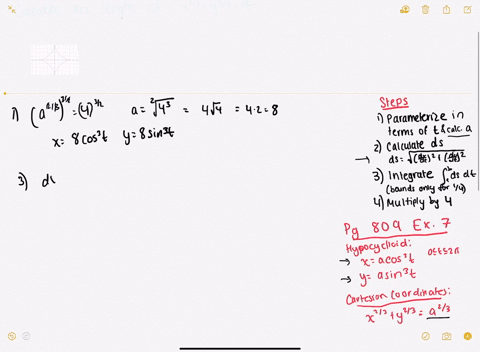 1) (a^(2/3))^(3/2) = (4)^(3/2)   a = ²√4³ = 4√4 = 4·2 = 8
x = 8cos³t   y = 8sin³t
3) ds
Steps
1) Parameterize in
terms of t & calc. a
2) Calculate ds
→ ds = √(dx/dt)² + (dy/dt)²
3) Integrate ∫ₐᵇ ds dt
(bounds only for 1/4)
4) Multiply by 4
Pg 809 Ex. 7
Hypocycloid:
→ x = acos³t   0≤t≤2π
→ y = asin³t
Cartesian Coordinates:
x^(2/3) + y^(2/3) = a^(2/3)